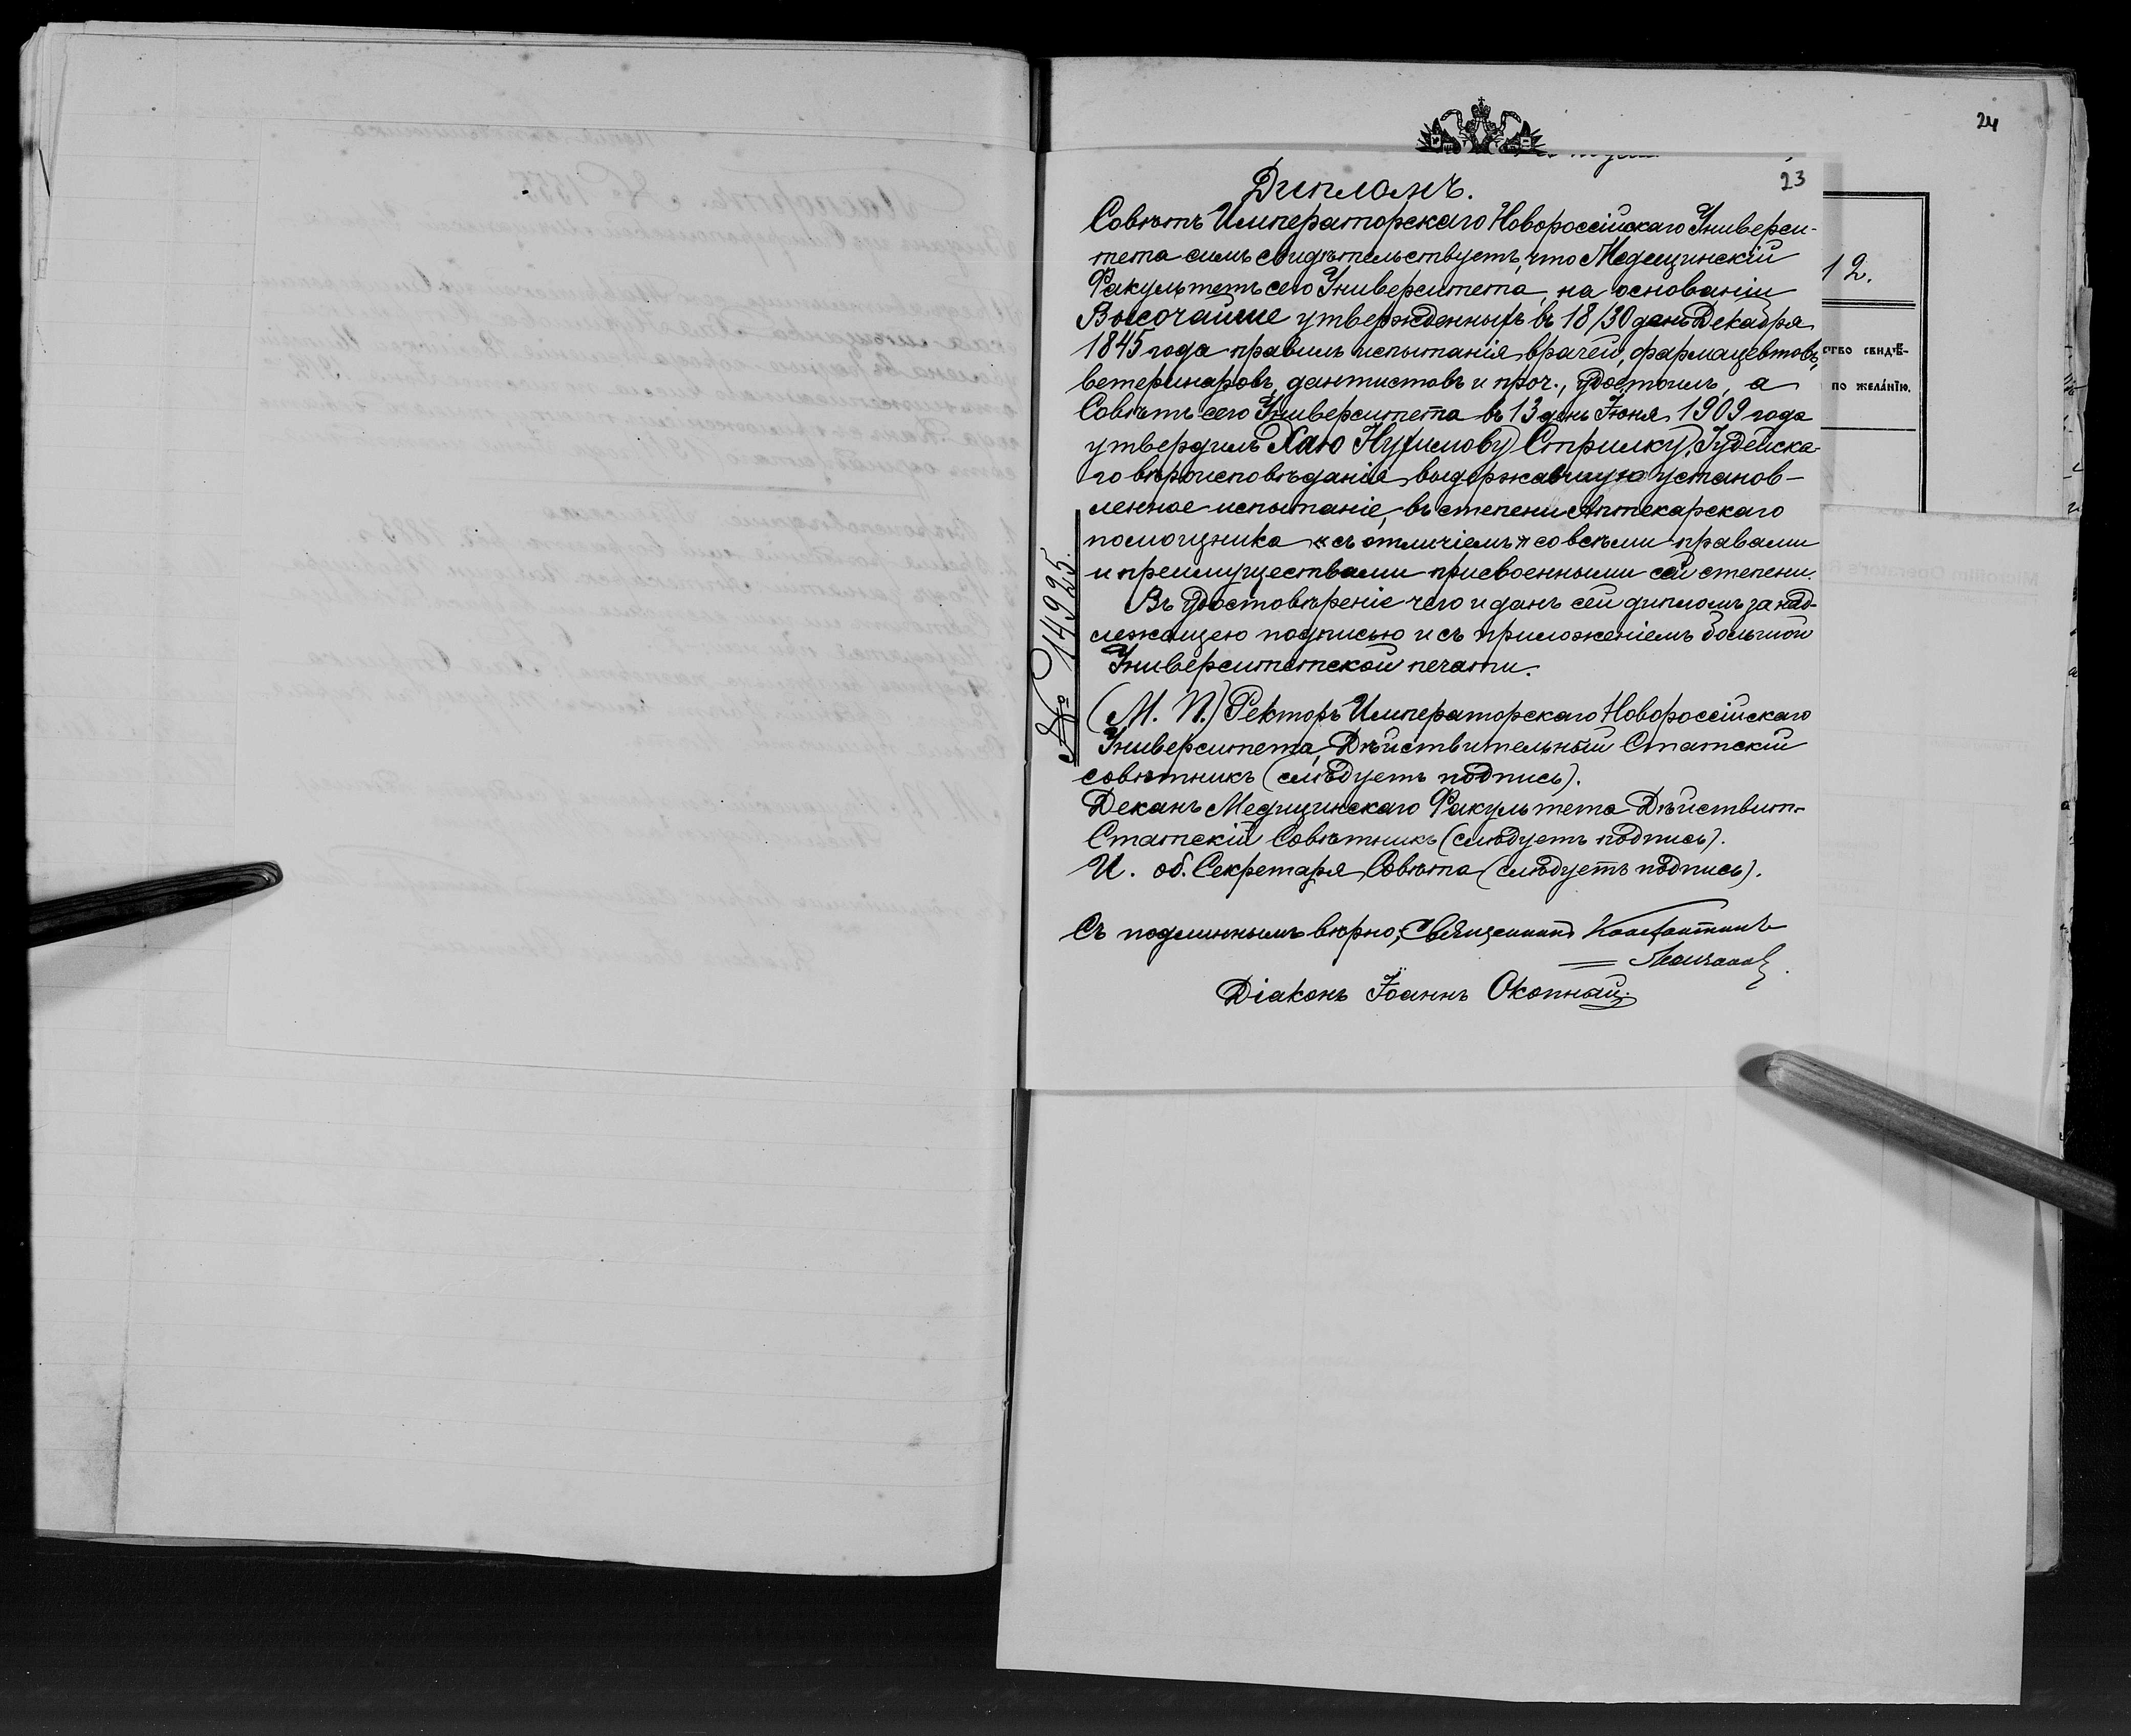 24
23
Дипломъ.
Совѣтъ Императорскаго Новороссійскаго Универси-
тета симъ свидѣтельствуетъ, что Медицинскій
Факультетъ сего Университета, на основаніи
Высочайше утвержденныхъ въ 18/30 день Декабря
1845 года правилъ испытанія врачей, фармацевтовъ,
ветеринаровъ, дантистовъ и проч., удостоилъ, а
Совѣтъ сего Университета въ 13 день Іюня 1909 года
утвердилъ Хаю Нухимову Стрилку, Іудейска-
го вѣроисповѣданія, выдержавшую установ-
ленное испытаніе, въ степени Аптекарскаго
помощника «съ отличіемъ» со всѣми правами
и преимуществами присвоенными сей степени.
Въ удостовѣреніе чего и данъ сей дипломъ за над-
лежащею подписью и съ приложеніемъ большой
Университетской печати.
№ 14925.
(М. П.) Ректоръ Императорскаго Новороссійскаго
Университета, Дѣйствительный Статскій
совѣтникъ (слѣдуетъ подпись).
Деканъ Медицинскаго Факультета Дѣйствит.
Статскій Совѣтникъ (слѣдуетъ подпись).
И. об. Секретаря Совѣта (слѣдуетъ подпись).
Съ подлиннымъ вѣрно: Священникъ Константинъ
Діаконъ Іоаннъ Окопный.
12.
ство свидѣ-
по желáнію.